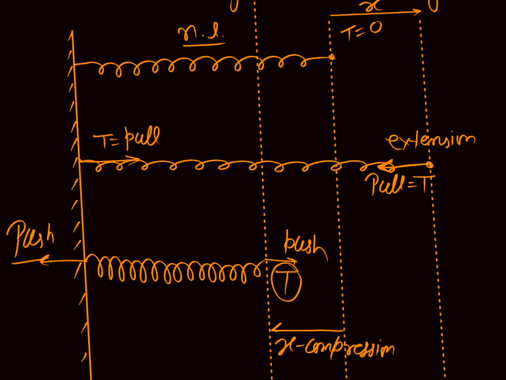 x
n.l.
T=0
T=pull
extension
Pull=T
Push
push
T
x-compression